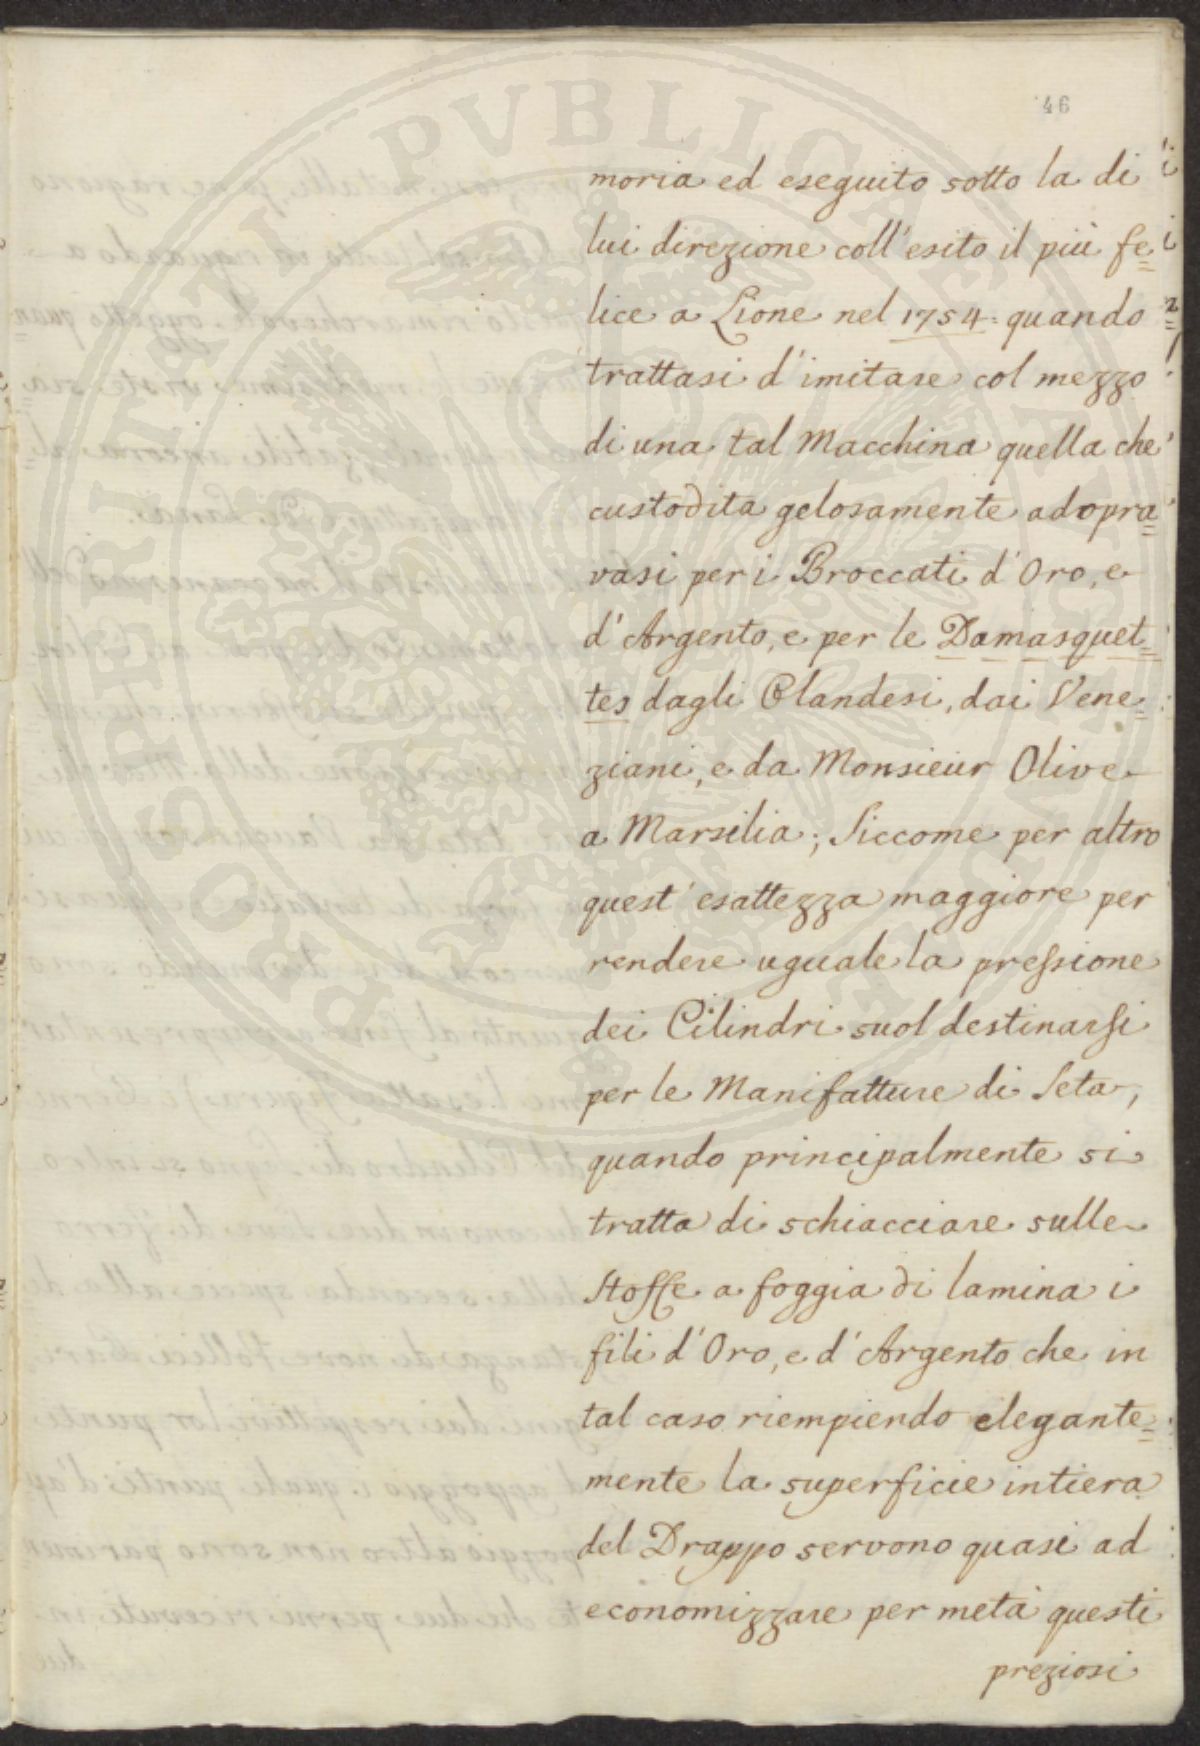 46
moria ed eseguito sotto la di
lui direzione coll'esito il più fe=
lice a Lione nel 1754. quando
trattasi d'imitare col mezzo
di una tal Macchina quella che
custodita gelosamente adopra=
vasi per i Broccati d'Oro, e
d'Argento, e per le Damasquet=
tes dagli Olandesi, dai Vene=
ziani, e da Monsieur Olive
a Marsilia; Siccome per altro
quest'esattezza maggiore per
rendere uguale la pressione
dei Cilindri suol destinarsi
per le Manifatture di Seta,
quando principalmente si
tratta di schiacciare sulle
Stoffe a foggia di lamina i
fili d'Oro, e d'Argento che in
tal caso riempiendo elegante=
mente la superficie intiera
del Drappo servono quasi ad
economizzare per metà questi
preziosi
PROSPERITATI PVBLICAE AVGENDAE